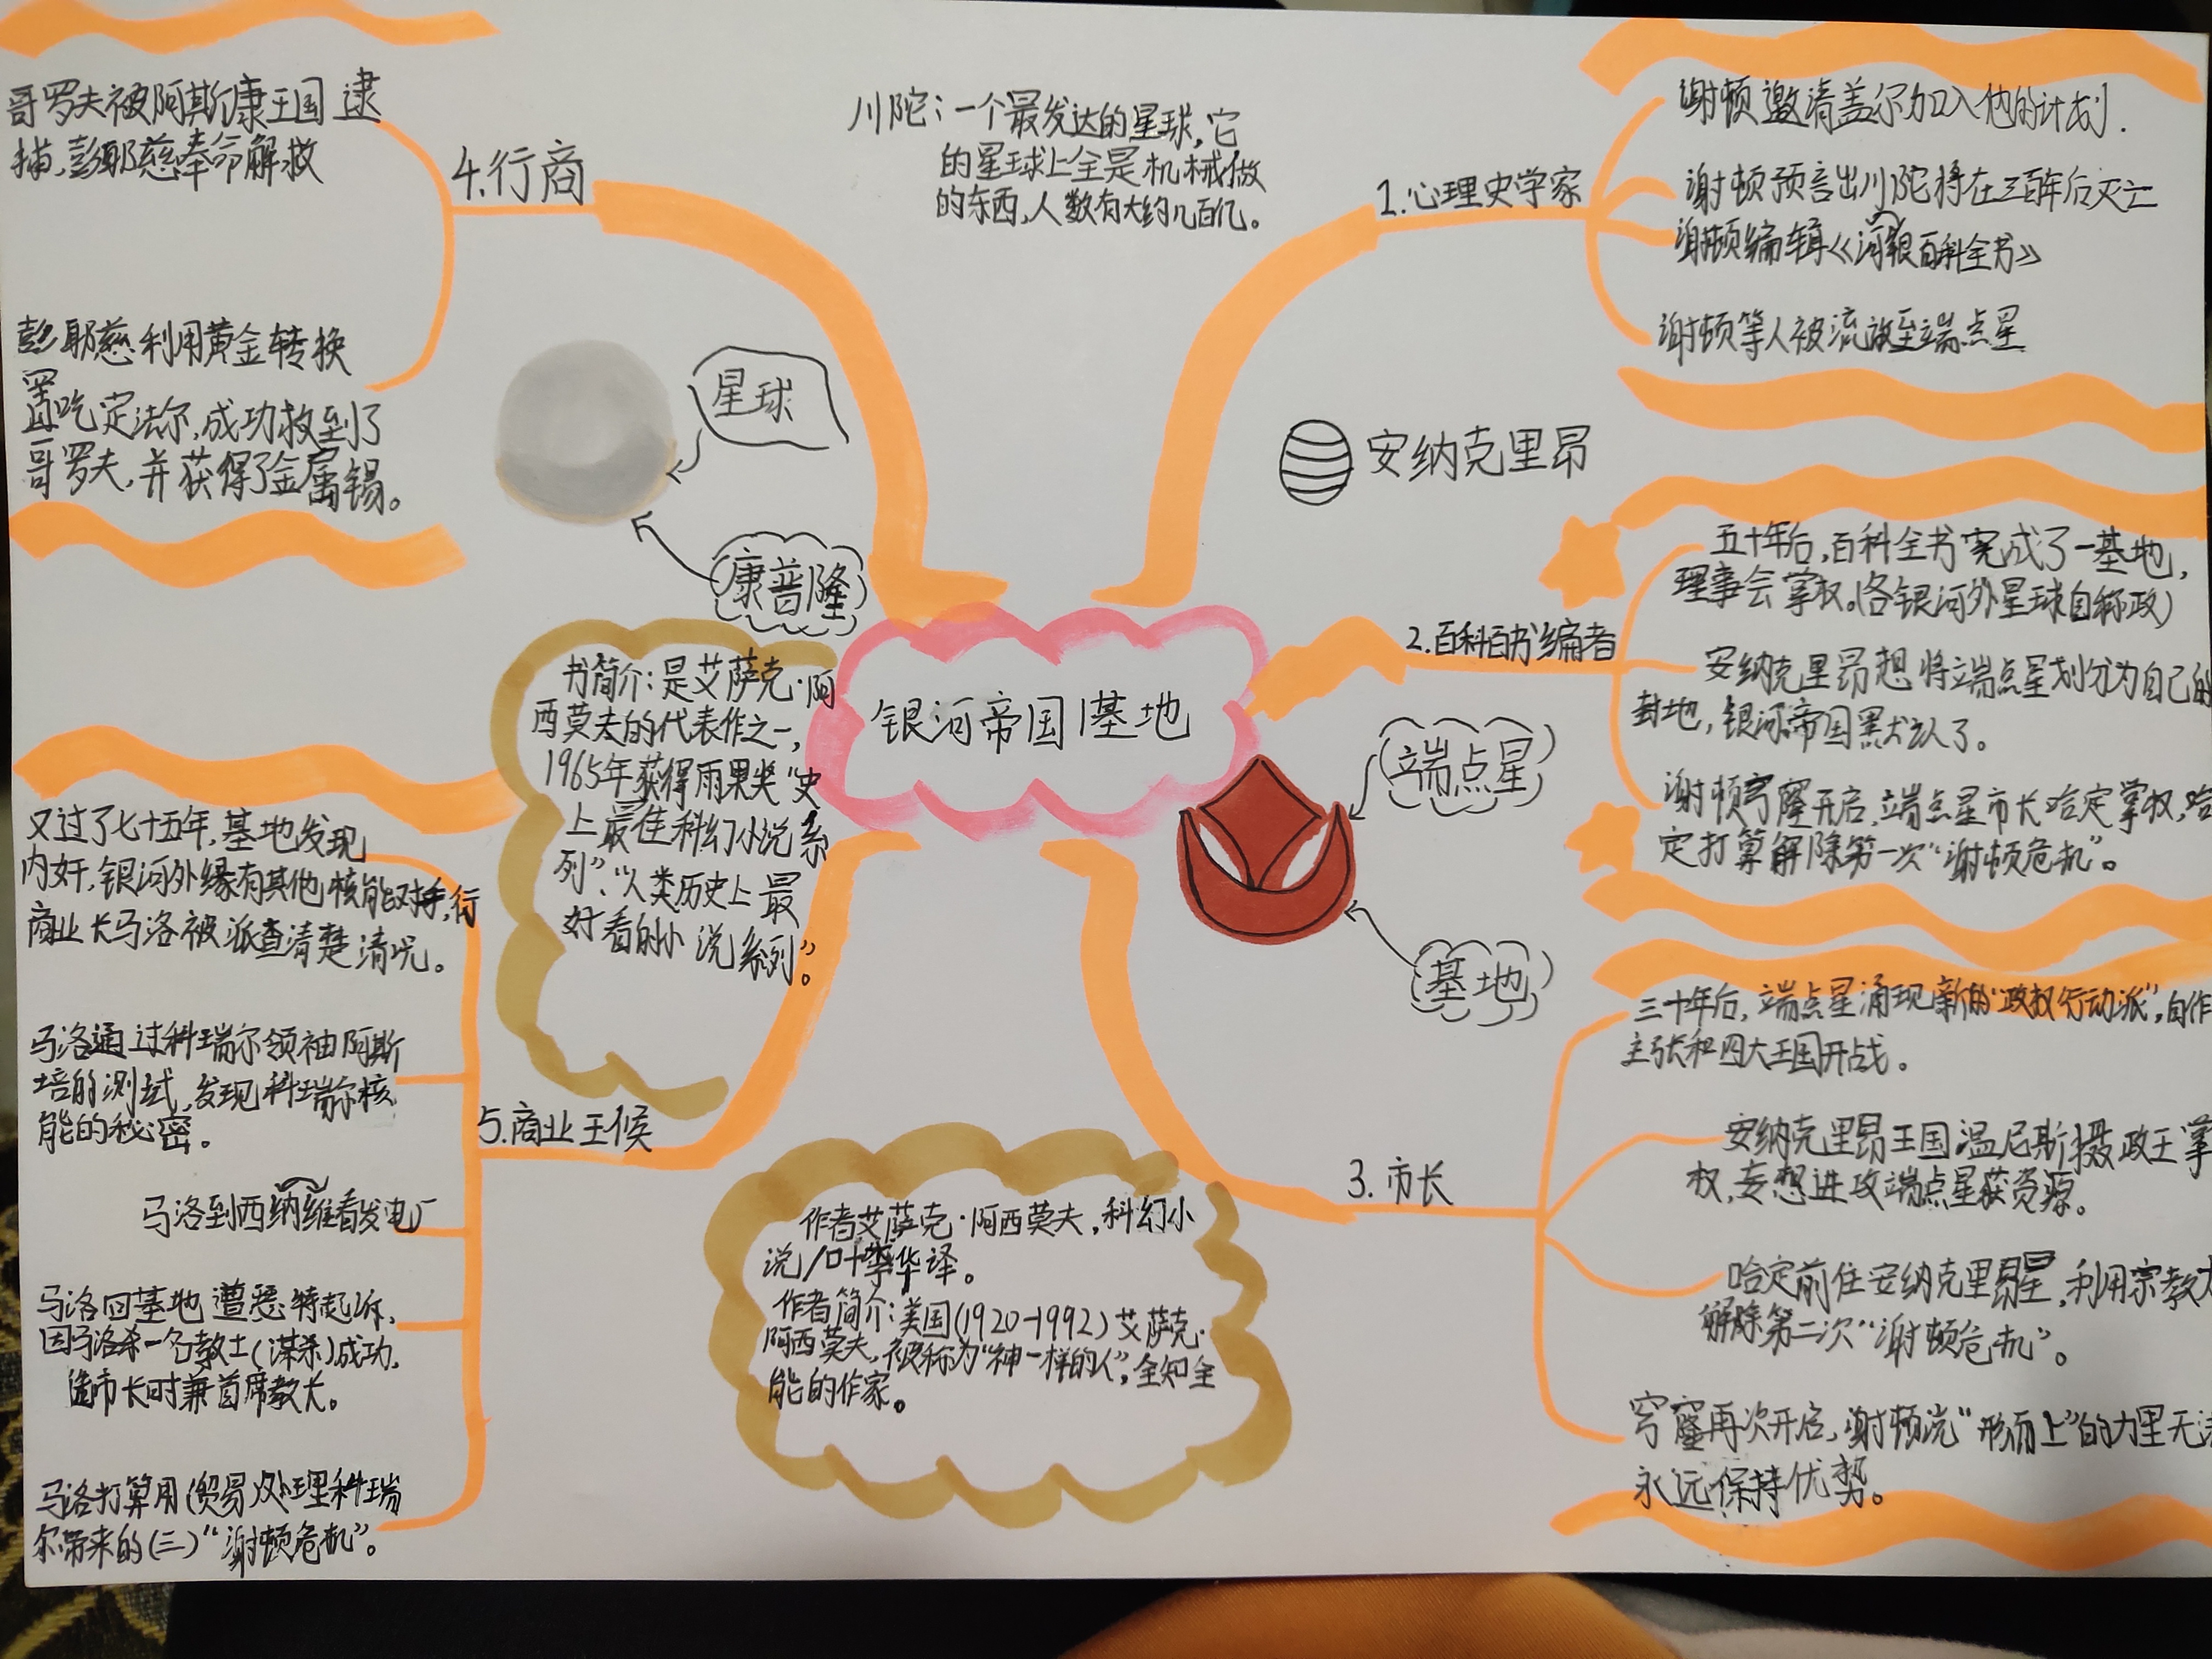 银河帝国|基地
1.心理史学家
谢顿邀请盖尔加入他的计划.
谢顿预言出川陀将在三百年后灭亡
谢顿编辑《银河百科全书》
谢顿等人被流放至端点星
2.百科全书编者
五十年后,百科全书完成了一基地,
理事会掌权。(各银河外星球自称政)
安纳克里昂想将端点星划分为自己的
封地,银河帝国默认了。
谢顿穹窿开启,端点星市长哈定掌权,哈
定打算解除第一次“谢顿危机”。
3.市长
三十年后,端点星涌现新的“政权行动派”,自作
主张和四大王国开战。
安纳克里昂王国温尼斯摄政王掌
权,妄想进攻端点星获资源。
哈定前往安纳克里昂星,利用宗教
解除第二次“谢顿危机”。
穹窿再次开启,谢顿说“形而上”的力量无
永远保持优势。
4.行商
哥罗夫被阿斯康王国逮
捕,彭耶慈奉命解救
彭耶慈利用黄金转换
器吃定法尔,成功救到了
哥罗夫,并获得了金属锡。
5.商业王侯
又过了七十五年,基地发现
内奸,银河外缘有其他核能对抗,行
商业长马洛被派查清楚清况。
马洛通过科瑞尔领袖阿斯
培的测试,发现科瑞尔核
能的秘密。
马洛到西纳维看发电厂
马洛回基地遭瑟特起诉:
因马洛杀一名教士(谋杀)成功.
选市长时兼首席教大。
马洛打算用(贸易)处理科瑞
尔带来的(三)“谢顿危机”。
书简介:是艾萨克·阿
西莫夫的代表作之一,
1965年获得雨果奖“史
上最佳科幻小说系
列”、“人类历史上最
好看的小说系列”。
作者艾萨克·阿西莫夫,科幻小
说/叶李华译。
作者简介:美国(1920-1992)艾萨克·
阿西莫夫,被称为“神一样的人”,全知全
能的作家。
川陀:一个最发达的星球,它
的星球上全是机械做
的东西,人数有大约几百亿。
星球
康普隆
安纳克里昂
端点星
基地